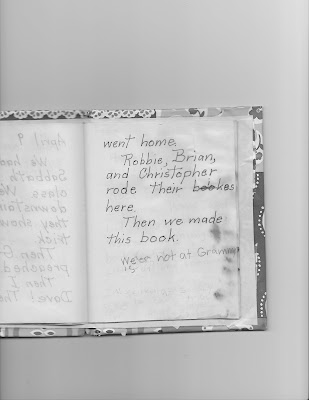 April 9
We had
Sabbath
class. We
downstair
they show
trick
Then G
preached
Then I
Dave! The
went home.
Robbie, Brian,
and Christopher
rode their bookes
here.
Then we made
this book.
we'er not at Gramm